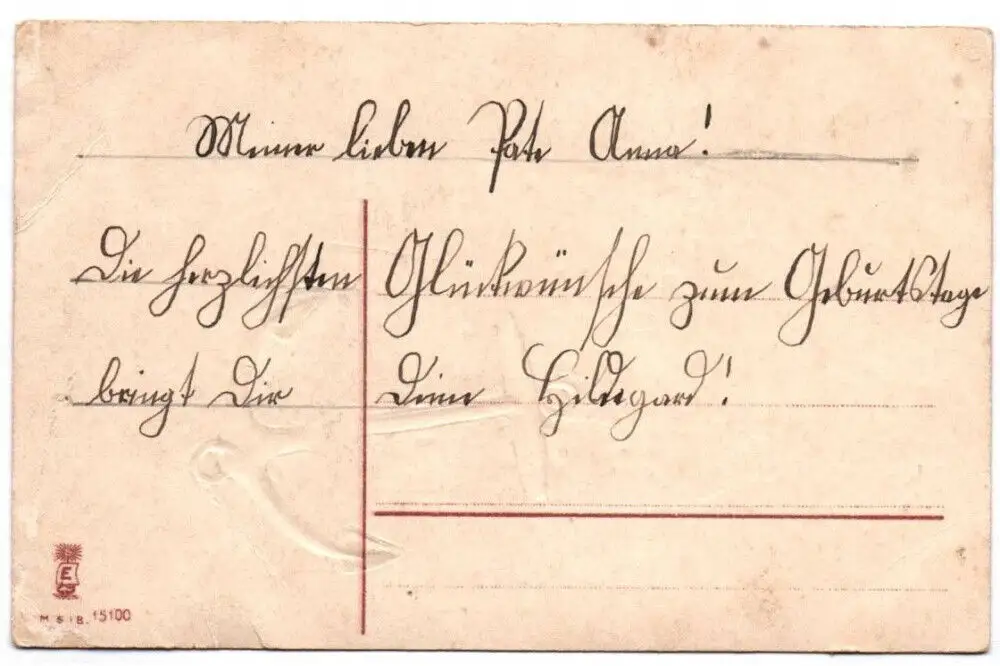 Meiner lieben Pate Anna!
Die herzlichsten Glückwünsche zum Geburtstage
bringt Dir Deine Hildegard!
E
M.S.i.B. 15100